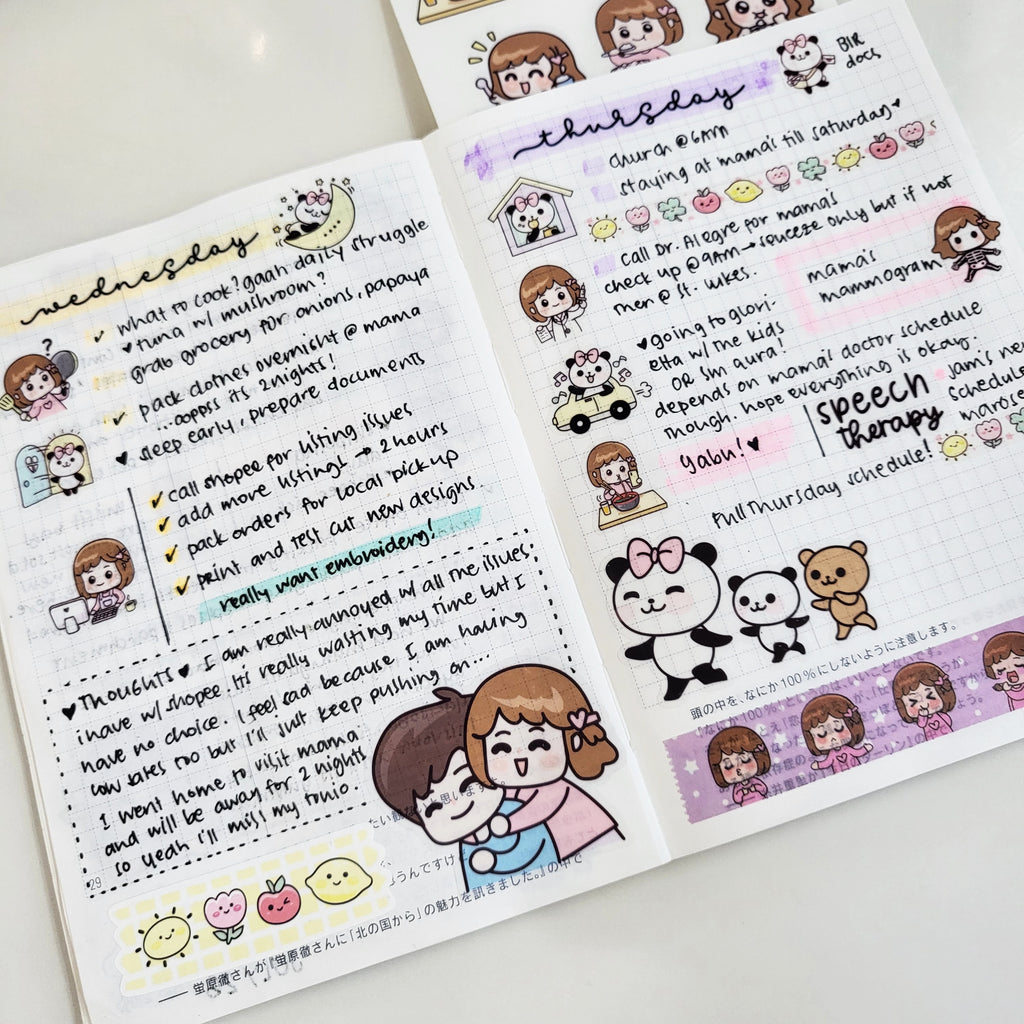 wednesday
what to cook? gaah daily struggle
♥ tuna w/ mushroom?
grab grocery for onions, papaya
pack clothes overnight @ mama
...oopps its 2 nights!
♥ sleep early, prepare documents
call shopee for listing issues
add more listings → 2 hours
pack orders for local pick up
print and test cut new designs
really want embroidery!
♥ Thoughts ♥ I am really annoyed w/ all the issues
i have w/ shopee. Its really wasting my time but I
have no choice. I feel sad because I am having
low sales too but I'll just keep pushing on...
I went home to visit mama
and will be away for 2 nights
so yeah i'll miss my
29
―― 蛍原徹さんが『蛍原徹さんに「北の国から」の魅力を訊きました。』の中で
thursday
BIR
docs
church @ 6AM
staying at mama's till saturday ♥
call Dr. Alegre for mama's
check up @ 9AM → squeeze only but if not
then @ St. Lukes.
mama's
mammogram
♥ going to glori-
etta w/ the kids
OR SM Aura!
depends on mama's doctor schedule
though. hope everything is okay.
yabu! ♥
speech
therapy
Jam's new
schedule
Full Thursday schedule!
頭の中を、なにか100%にしないように注意します。